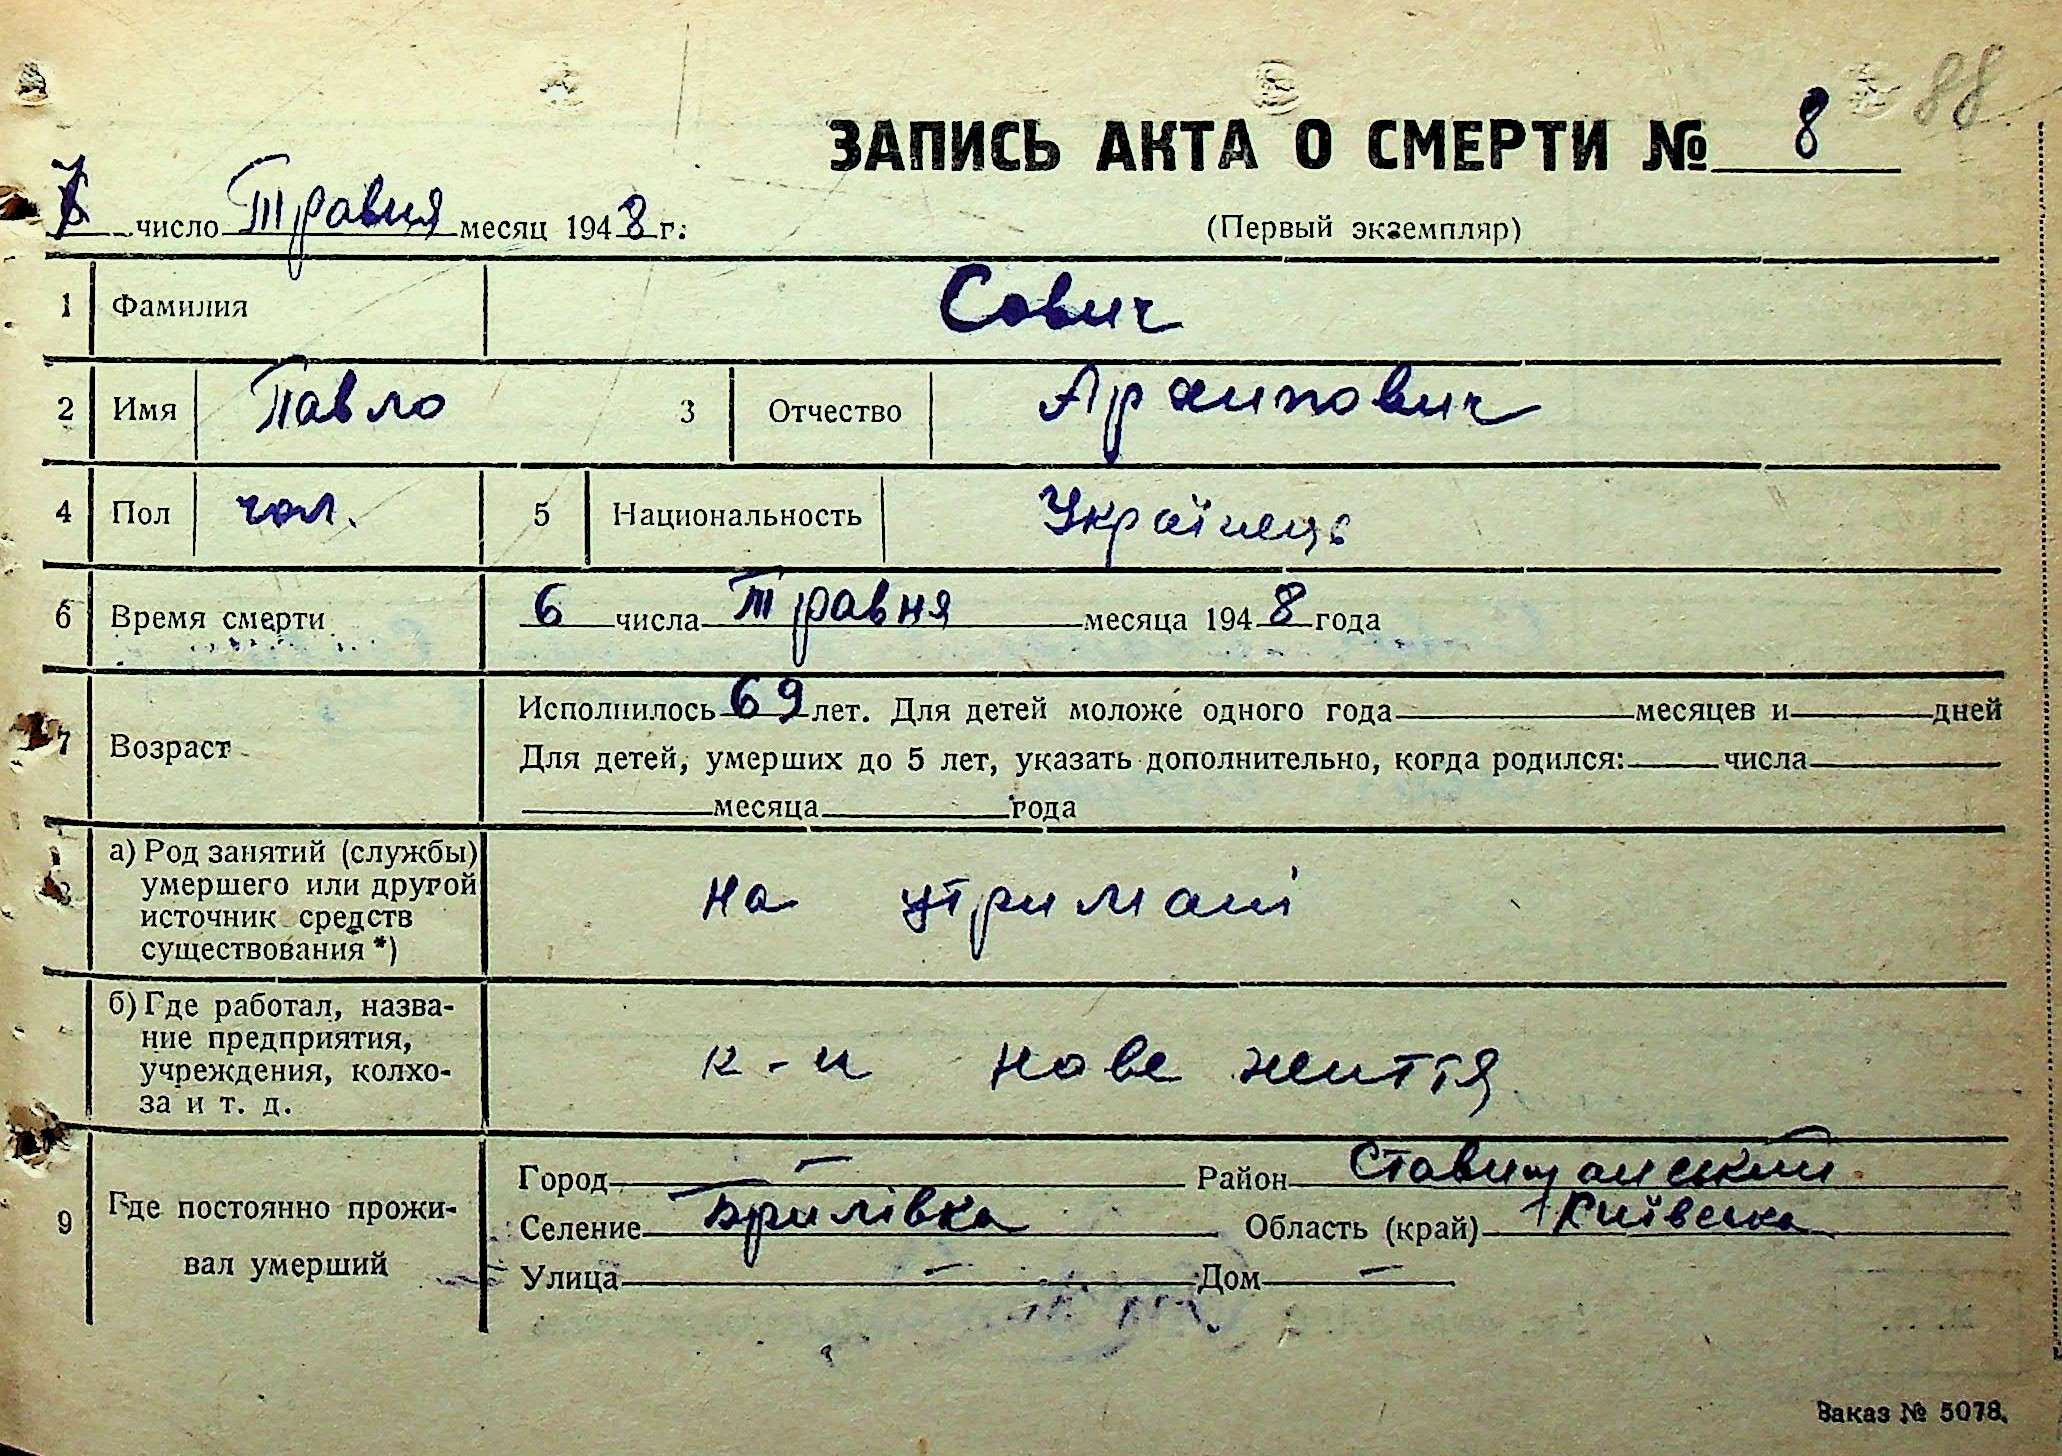 88
ЗАПИСЬ АКТА О СМЕРТИ № 8
7 число Травня месяц 1948 г.
(Первый экземпляр)
1 Фамилия Сович
2 Имя Павло 3 Отчество Архипович
4 Пол чол. 5 Национальность Українець
6 Время смерти 6 числа Травня месяца 1948 года
7 Возраст Исполнилось 69 лет. Для детей моложе одного года месяцев и дней
Для детей, умерших до 5 лет, указать дополнительно, когда родился: числа
месяца года
а) Род занятий (службы)
умершего или другой
источник средств
существования *)
на утримані
б) Где работал, назва-
ние предприятия,
учреждения, колхо-
за и т. д.
к-п нове життя
9 Где постоянно прожи-
вал умерший
Город — Район Ставищанський
Селение Брилівка Область (край) Київська
Улица — Дом —
Заказ № 5078.